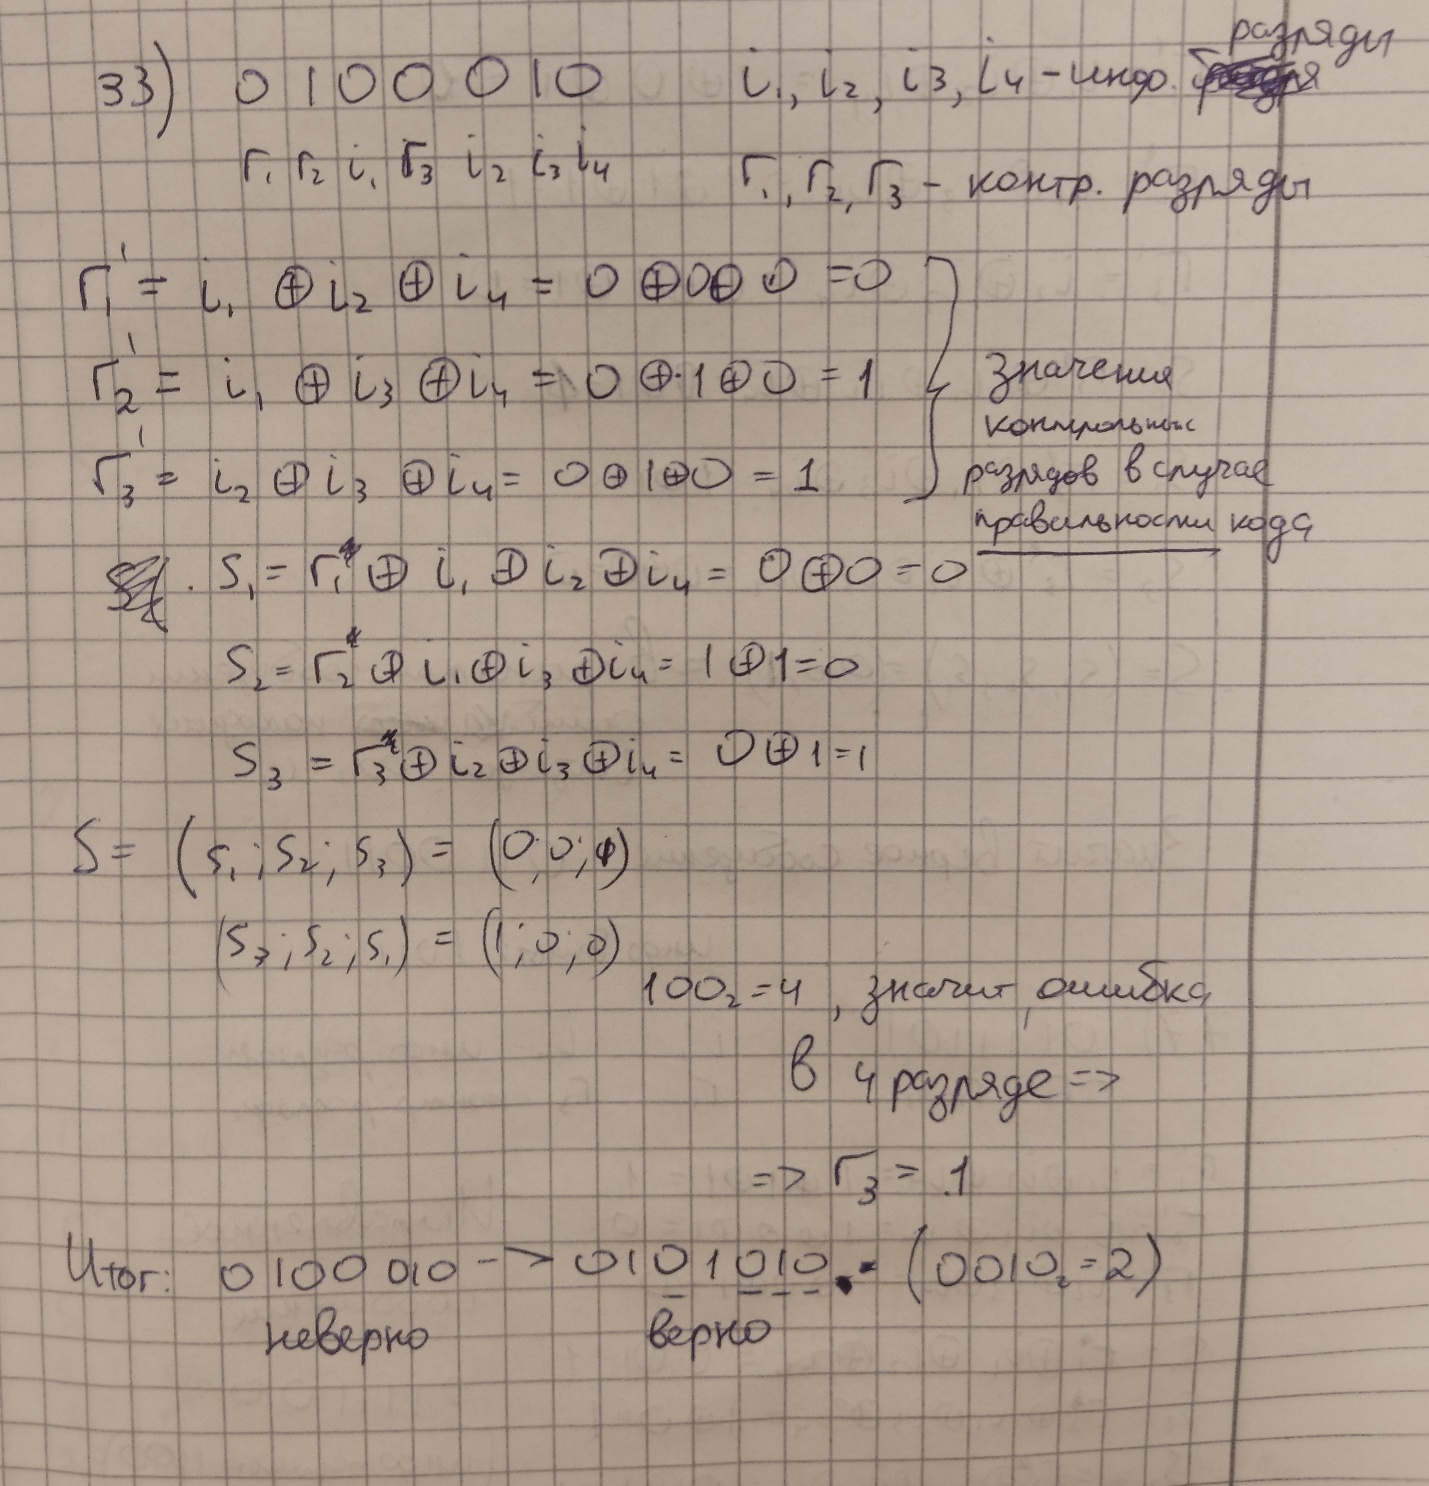 33) 0 1 0 0 0 1 0 i₁, i₂, i₃, i₄ - инф. разряды
r₁ r₂ i₁ r₃ i₂ i₃ i₄ r₁, r₂, r₃ - контр. разряды
r₁' = i₁ ⊕ i₂ ⊕ i₄ = 0 ⊕ 0 ⊕ 0 = 0
r₂' = i₁ ⊕ i₃ ⊕ i₄ = 0 ⊕ 1 ⊕ 0 = 1
r₃' = i₂ ⊕ i₃ ⊕ i₄ = 0 ⊕ 1 ⊕ 0 = 1
значения
контрольных
разрядов в случае
правильности кода
S₁ = r₁ ⊕ i₁ ⊕ i₂ ⊕ i₄ = 0 ⊕ 0 = 0
S₂ = r₂ ⊕ i₁ ⊕ i₃ ⊕ i₄ = 1 ⊕ 1 = 0
S₃ = r₃ ⊕ i₂ ⊕ i₃ ⊕ i₄ = 0 ⊕ 1 = 1
S = (s₁; s₂; s₃) = (0; 0; 1)
(s₃; s₂; s₁) = (1; 0; 0)
100₂ = 4, значит, ошибка
в 4 разряде =>
=> r₃ = 1
Итог: 0100010 -> 0101010. (0010₂ = 2)
неверно верно